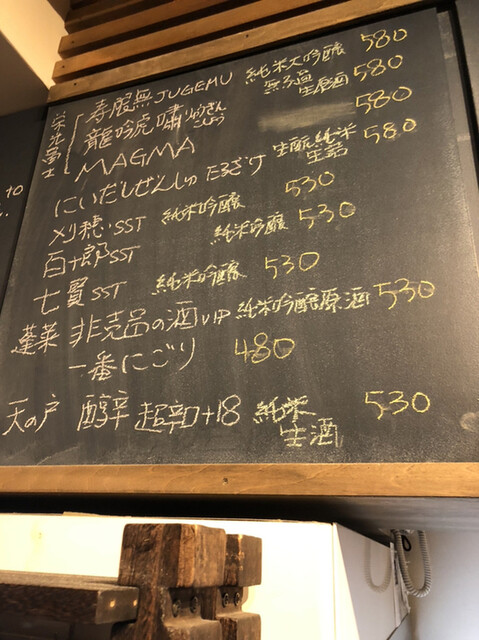 栄光冨士
寿限無JUGEMU 純米大吟醸 580
無ろ過生原酒
龍吟虎嘯 りゅうぎんこしょう 580
MAGMA 580
にいだしぜんしゅ たるざけ 生酛純米 生詰 580
刈穂・SST 純米吟醸 530
百十郎SST 純米吟醸 530
七賢SST 純米吟醸 530
蓬莱 非売品の酒VIP 純米吟醸原酒 530
一番にごり 480
天の戸 醇辛 超辛口+18 純米生酒 530
to